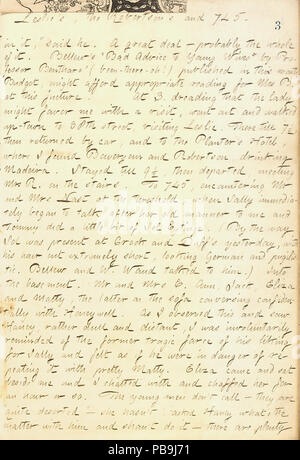 Leslie's, the Robertson's and 745.
3
in it," said he. A great deal — probably the whole
of it. Bellew's "Bad Advice to Young Wives by Pro-
fessor Bentham" (been-there-oh!) published in this month
Budget, might afford appropriate reading for Mrs B.
at this juncture. At 3, dreading that the lady
might favor me with a visit, went out and walked
up-town to 68th street, visiting Leslie. There till 7½
then returned by car, and to the Planter's Hotel,
where I found Boweryem and Robertson drinking
Madeira. Stayed till 9½ then departed, meeting
Mrs R. on the stairs. To 745, encountering Mr
and Mrs Last at the threshold, when Sally immedia-
tely began to talk after her old manner to me and
Tommy did a little bit of Sol E (By the way
Sol was present at Crook and Duff's yesterday, with
his hair cut extremely short, looking German and pugilis-
tic. Bellew and Mr Waud talked to him.) Into
the basement. Mr and Mrs E, Ann, Jack, Eliza
and Matty, the latter on the sofa conversing confiden-
tially with Honeywell. As I observed this and saw
Haney, rather dull and distant, I was involuntarily
reminded of the former tragic farce of his liking
for Sally and felt as if he were in danger of re-
peating it with pretty Matty. Eliza came and sat
beside me and I chatted with and chaffed her for
an hour or so. The young men don't call — they are
quite deserted — she hasn't asked Haney what's the
matter with him and shan't do it — there are plenty
alamy
Image ID: PB9J71
www.alamy.com